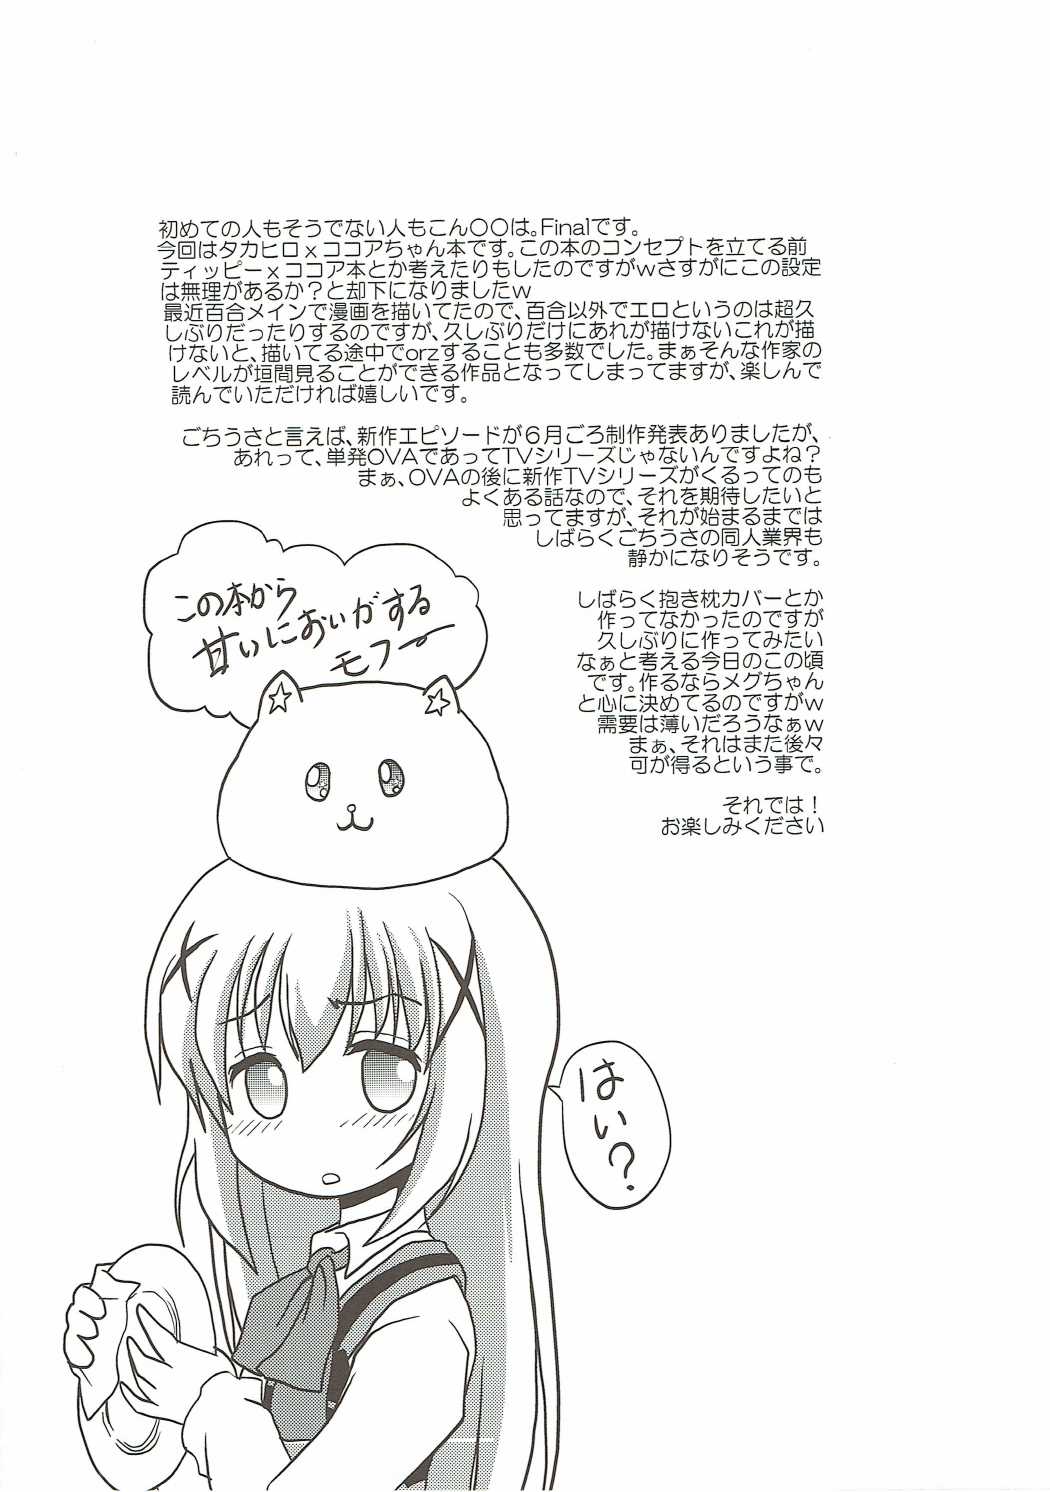 初めての人もそうでない人もこん〇〇は。Finalです。
今回はタカヒロxココアちゃん本です。この本のコンセプトを立てる前
ティッピーxココア本とか考えたりもしたのですがwさすがにこの設定
は無理があるか？と却下になりましたw
最近百合メインで漫画を描いてたので、百合以外でエロというのは超久
しぶりだったりするのですが、久しぶりだけにあれが描けないこれが描
けないと、描いてる途中でorzすることも多数でした。まぁそんな作家の
レベルが垣間見ることができる作品となってしまってますが、楽しんで
読んでいただければ嬉しいです。
ごちうさと言えば、新作エピソードが６月ごろ制作発表ありましたが、
あれって、単発OVAであってTVシリーズじゃないんですよね？
まぁ、OVAの後に新作TVシリーズがくるってのも
よくある話なので、それを期待したいと
思ってますが、それが始まるまでは
しばらくごちうさの同人業界も
静かになりそうです。
しばらく抱き枕カバーとか
作ってなかったのですが
久しぶりに作ってみたい
なぁと考える今日のこの頃
です。作るならメグちゃん
と心に決めてるのですがw
需要は薄いだろうなぁw
まぁ、それはまた後々
可が得るという事で。
それでは！
お楽しみください
この本から
甘いにおいがする
モフー
はい？